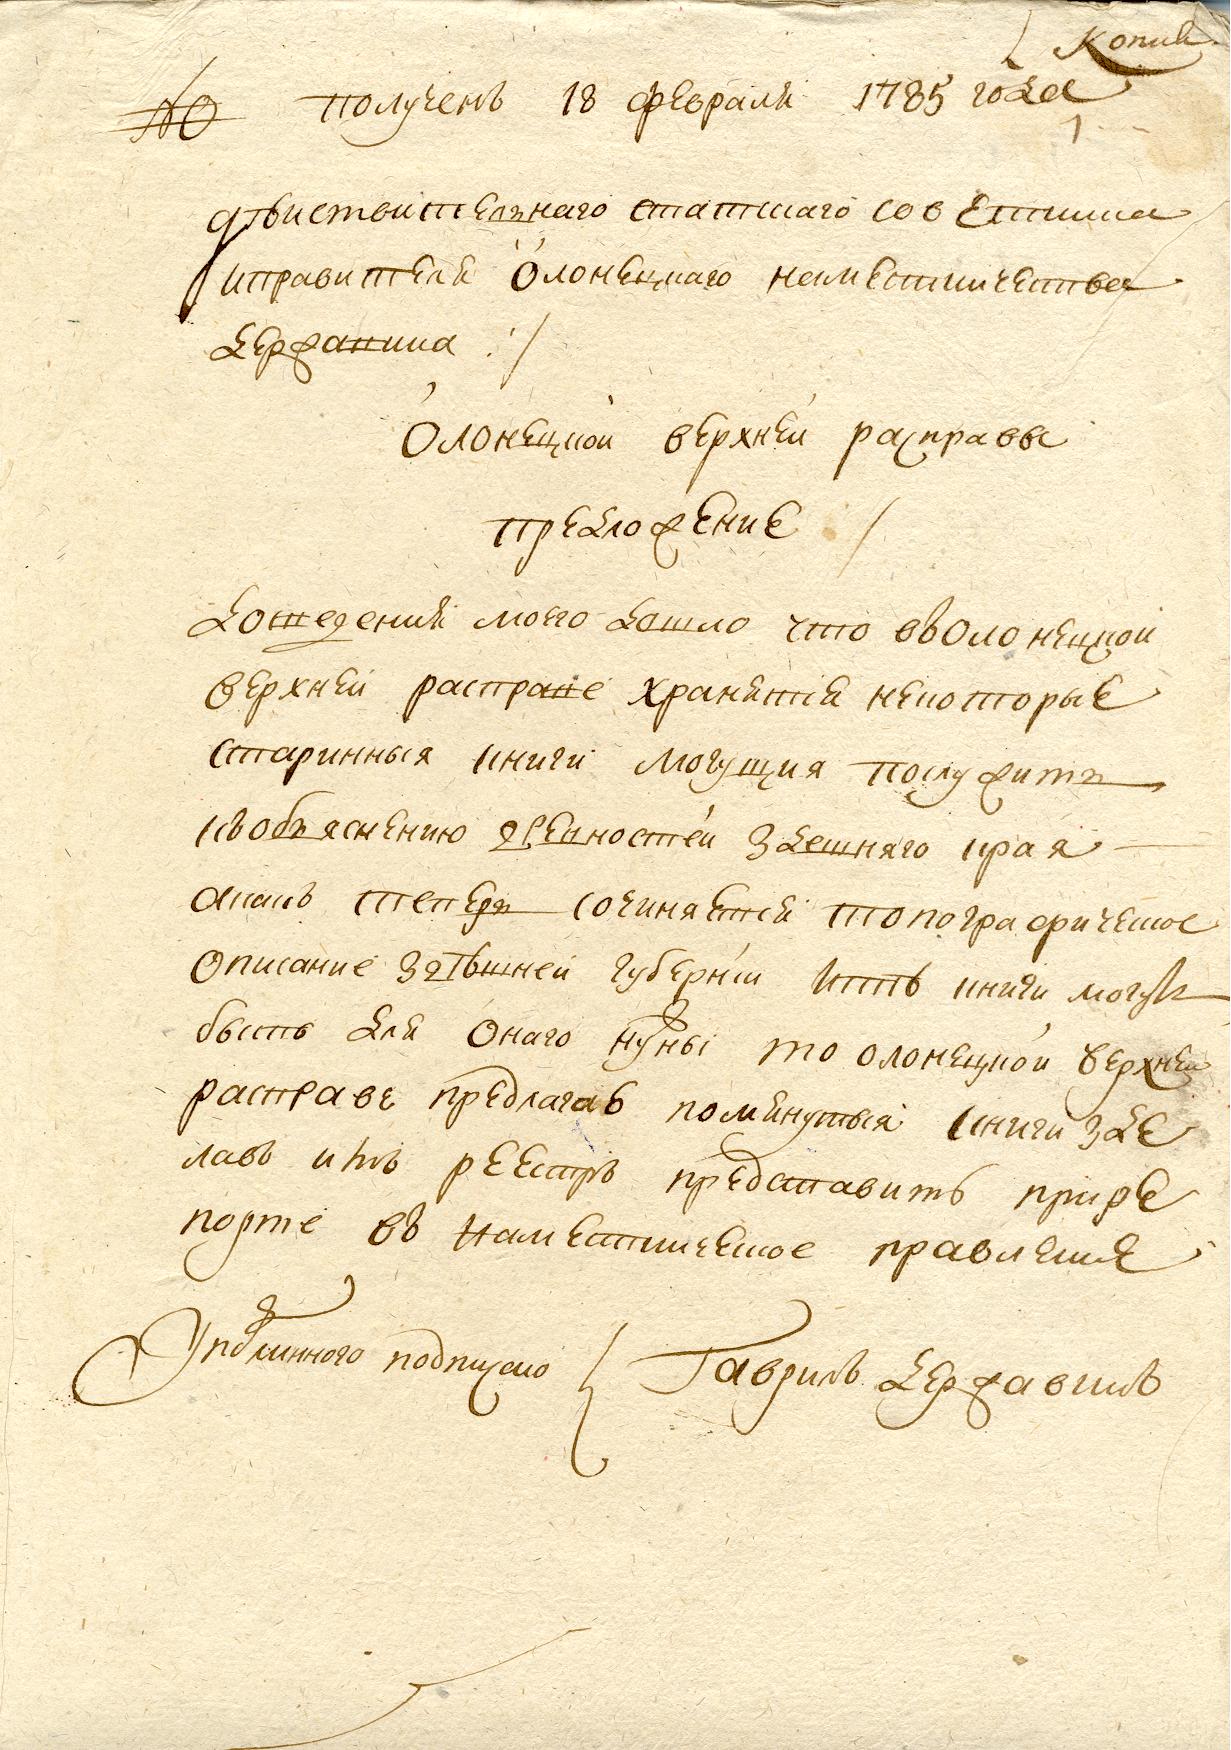 Копия
№ получено 18 февраля 1785 года
1
действительнаго статскаго советника
иправителя Олонецкаго наместничества
державина :/
Олонецкой верхней расправы
предложение /
досведения моего дошло что вволонецкой
верхней расправе хранятся некоторые
старинныя книги могущия послужить
кобъяснению древностей здешняго края
акакъ теперь сочиняется топографическое
Описание здѣшней губернии итѣ книги могутъ
быть для онаго нужны то олонецкой верхней
расправе предлагаю помянутыя книги зде
лавъ имъ реестръ представить прире
порте въ наместническое правление
Уподлинного подписано { Гаврилъ державинъ